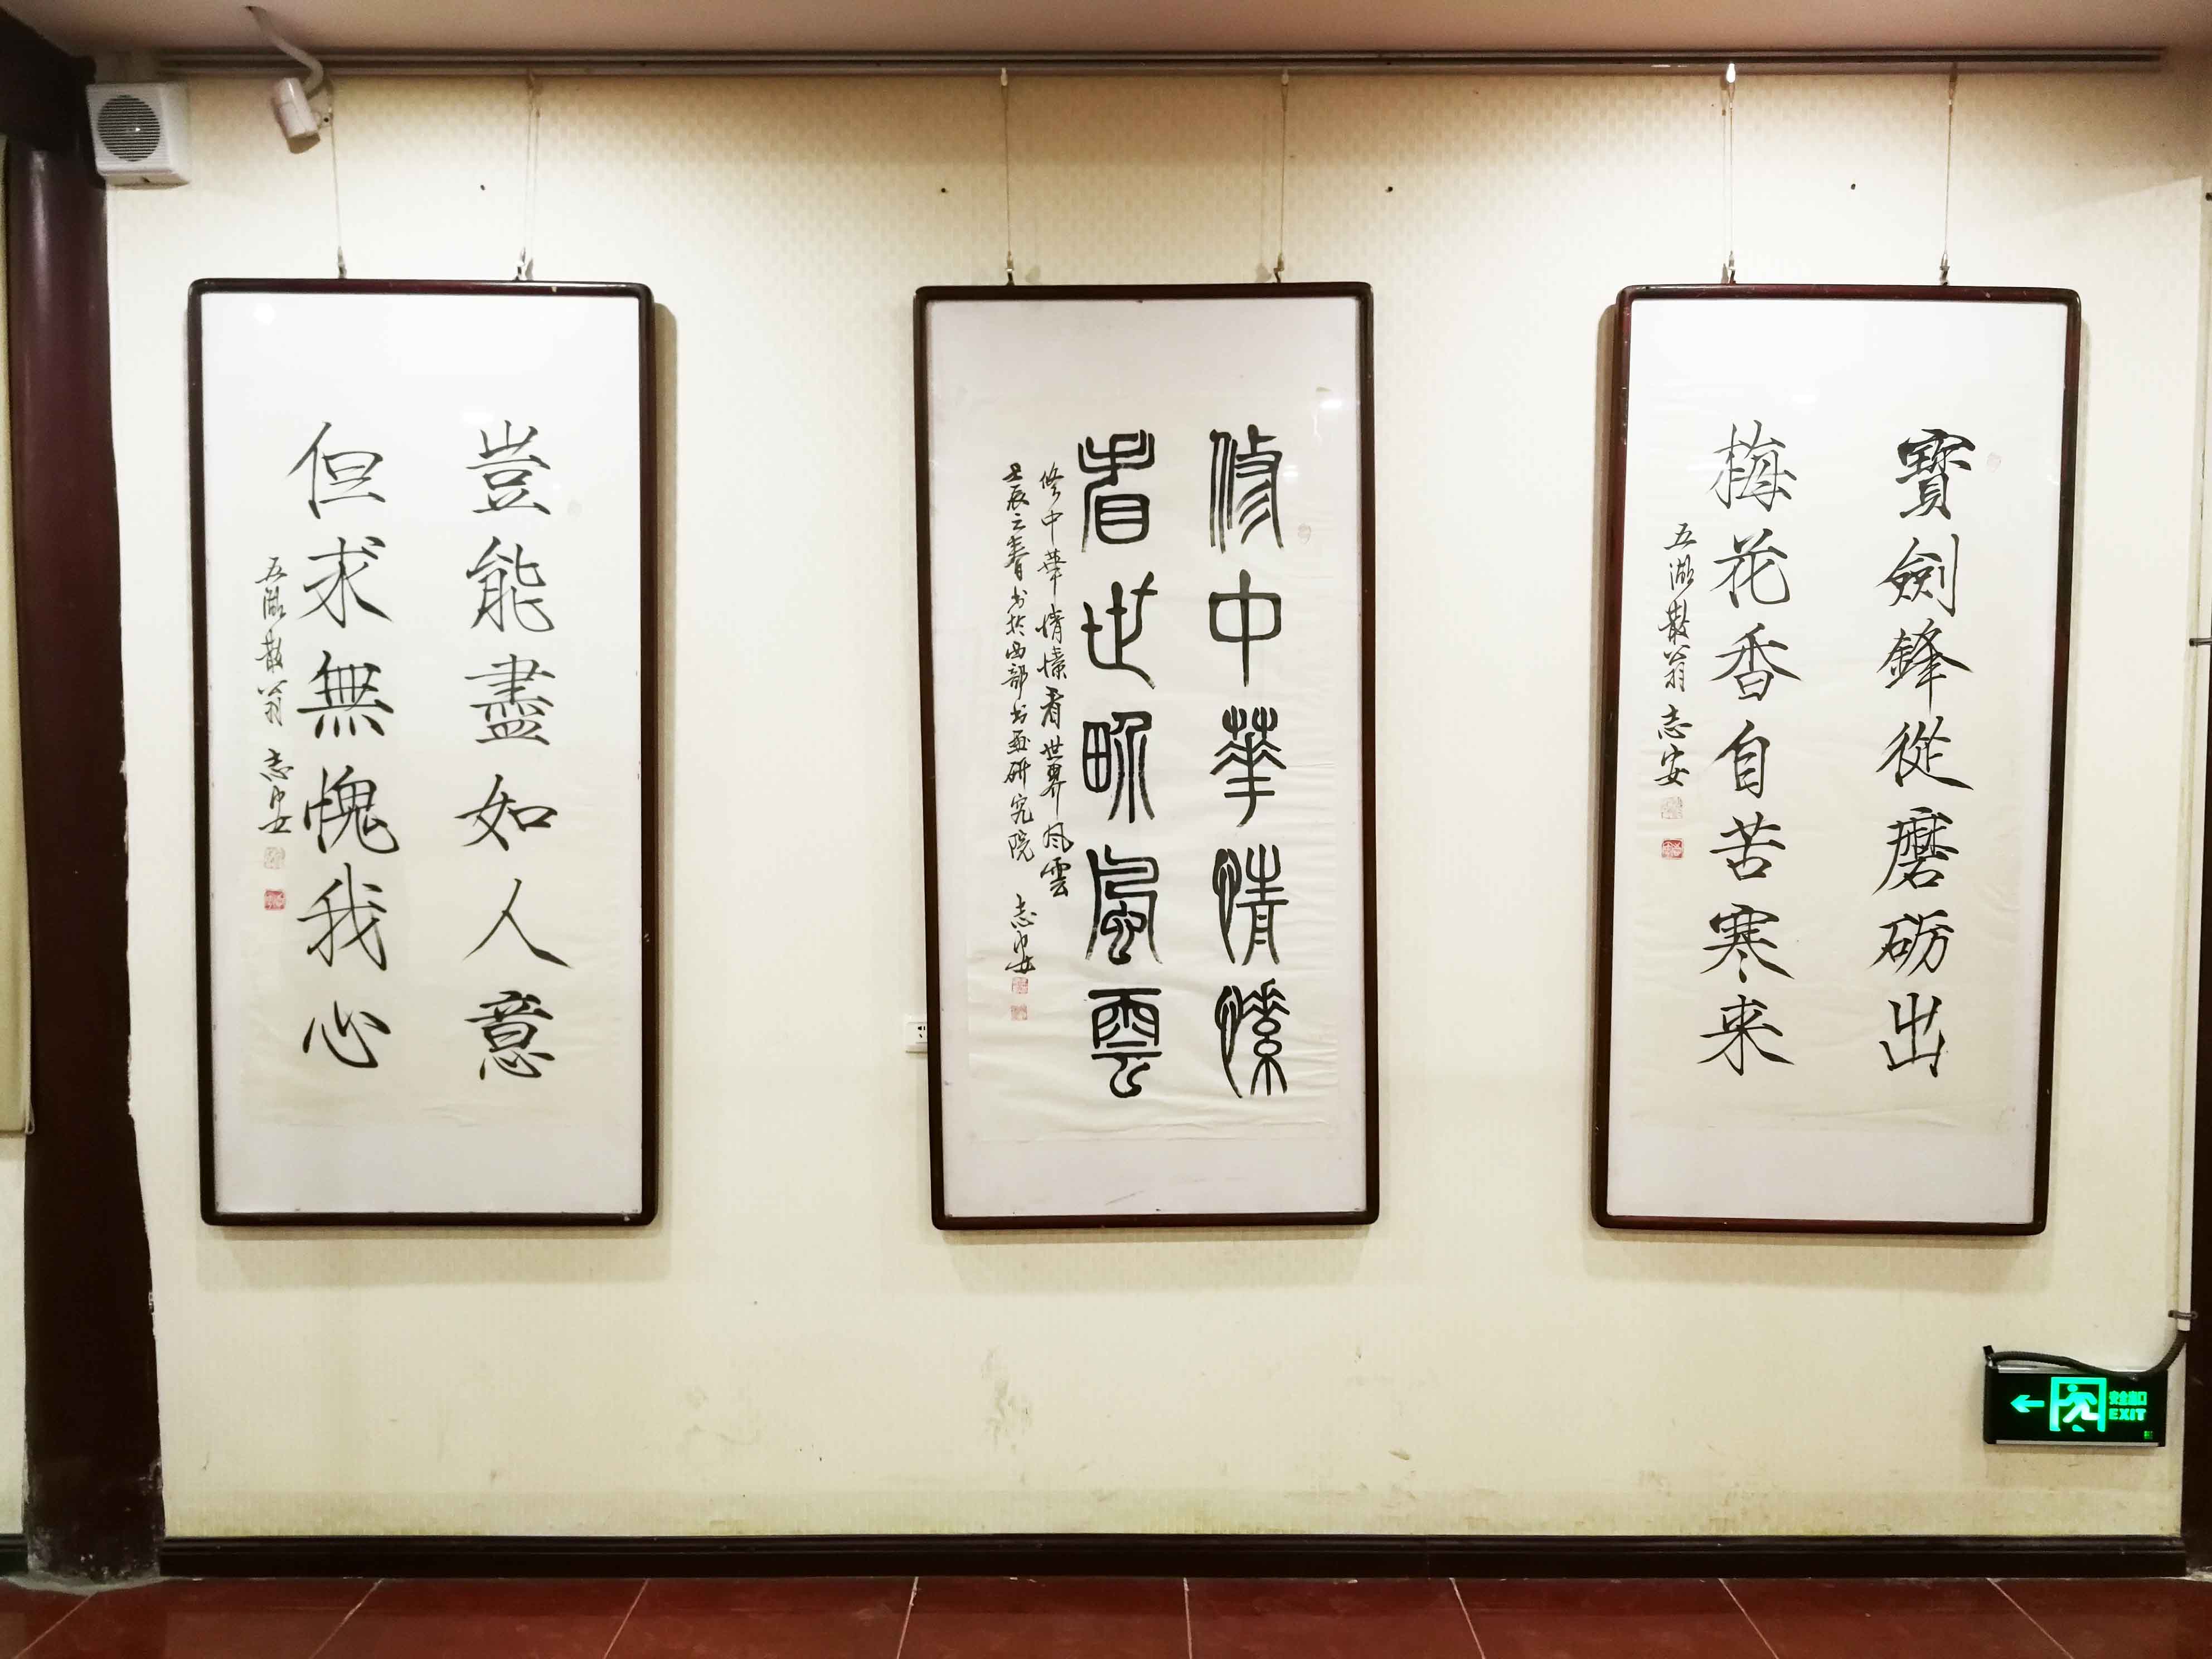 寶劍鋒從磨砺出
梅花香自苦寒来
五湖散翁 志安
修中華情愫
看世界風雲
修中華情愫看世界风雲
壬辰之春書於西部书画研究院 志安
豈能盡如人意
但求無愧我心
五湖散翁 志安
安全出口
EXIT